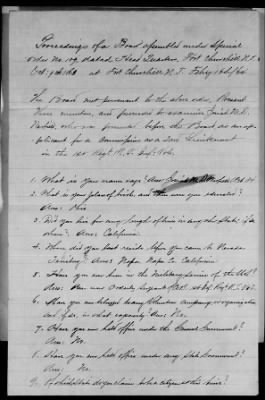 Proceedings of a Board assembled under Special
Order No. 109, dated Head Quarters, Fort Churchill N.T.
at Fort Churchill N.T. Feby
The Board met pursuant to the above order, Present
members, and proceeded to examine
who was before the Board as an ap-
plicant for a Commission as a 2nd Lieutenant
in the 1st N.T.
1. What is your name age? Ans:
2. What is your place of birth, and where were you educated?
Ans: Ohio
3. Did you live for any length of time in any other State, if so
where? Ans: California
4. Where did you last reside before you came to Nevada
Territory? Ans: Napa, Napa Co. California
5. Have you ever been in the Military service of the U.S.?
Ans: Am now Orderly Sergeant
6. Have you ever belonged to any Volunteer company or organization
and if so, in what capacity? Ans: No.
7. Have you ever held office under the General Government?
Ans: No.
8. Have you ever held office under any State Government?
Ans: No.
9. Of what State do you claim to be a citizen at this time?